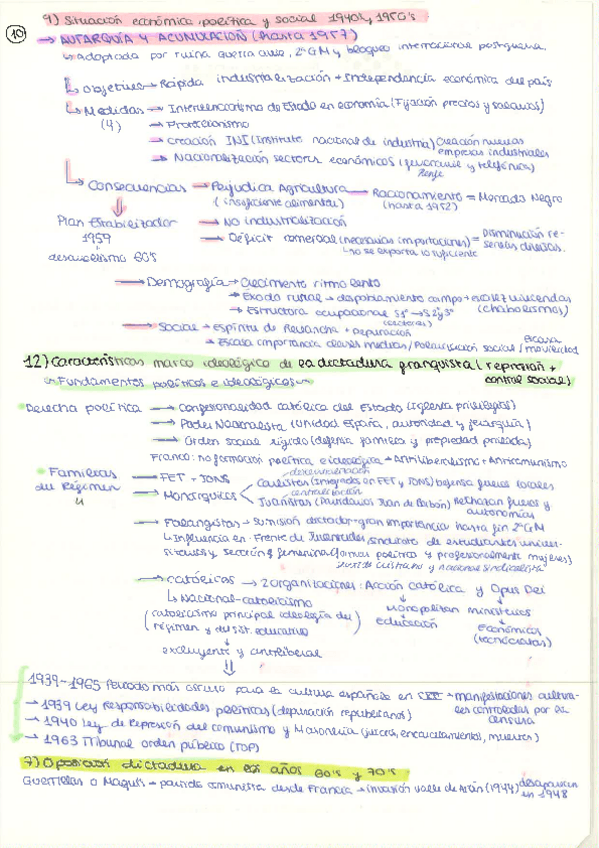 10
9) Situación económica, política y social 1940's, 1950's
→ AUTARQUÍA Y ACUMULACIÓN (hasta 1957)
↳ adoptada por ruina guerra civil, 2ª GM y bloqueo internacional postguerra.
↳ Objetivos → Rápida industrialización + Independencia económica del país
↳ Medidas → Intervencionismo de Estado en economía (Fijación precios y salarios)
(4) → Proteccionismo
→ creación INI (Instituto nacional de industria) Creación nuevas empresas industriales
→ Nacionalización sectores económicos (ferrocarril y telefónica)
Renfe
↳ Consecuencias → Perjudica Agricultura → Racionamiento = Mercado Negro
(insuficiente alimentar) (hasta 1952)
Plan Estabilizador → No industrialización
1959 → Déficit comercial (necesarias importaciones) = Disminución reservas divisas.
desarrollismo 60's ↳ no se exporta lo suficiente
→ Demografía → Crecimiento ritmo lento
→ Éxodo rural → despoblamiento campo + escasez viviendas
(chabolismos)
→ Estructura ocupacional S1º → S2º y 3º
(sectores)
→ Social → Espíritu de Revancha + depuración
→ Escasa importancia clases medias / Polarización social / Escasa movilidad
12) Características marco ideológico de la dictadura franquista (represión + control social)
Fundamentos políticos e ideológicos
Derecha política → Confesionalidad católica del Estado (Iglesia privilegios)
→ Poder Nacionalista (Unidad España, autoridad y jerarquía)
→ Orden social rígido (defensa familia y propiedad privada)
Franco: no formación política e ideológica → Antiliberalismo + Anticomunismo
descentralización
Familias → FET - JONS Carlistas (Integrados en FET y JONS) Defensa fueros locales
del Régimen → Monárquicos centralización
4 Juanistas (Partidarios Juan de Borbón) Rechazan fueros y autonomías
→ Falangistas → sumisión dictador → gran importancia hasta fin 2ª GM
↳ Influencia en: Frente de Juventudes, sindicato de estudiantes universitarios y sección femenina (formar política y profesionalmente mujeres)
y nacional sindicalista
→ católicos → 2 organizaciones: Acción católica y Opus Dei
↳ Nacional-catolicismo Monopolizan ministerios
(catolicismo principal ideología del régimen y del sist. educativo) educación económicos
(tecnócratas)
excluyente y antiliberal
1939-1965 Periodo más oscuro para la cultura española en + manifestaciones culturales controladas por la censura
→ 1939 Ley Responsabilidades políticas (depuración republicanos)
→ 1940 Ley de Represión del comunismo y Masonería (juicios, encarcelamientos, muertes)
→ 1963 Tribunal orden público (TOP)
7) Oposición dictadura en los años 60's y 70's
Guerrillas o Maquis → partido comunista desde Francia → invasión valle de Arán (1944) desaparecen en 1948